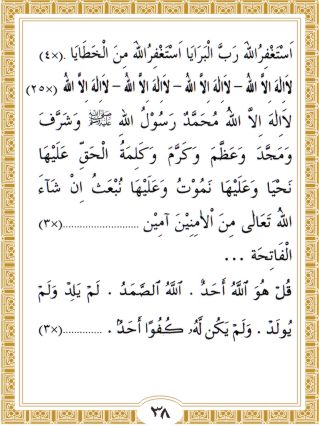 اَسْتَغْفِرُاللهَ رَبَّ الْبَرَايَا اَسْتَغْفِرُاللهَ مِنَ الْخَطَايَا .(×٤)
لاَاِلٰهَ اِلاَّ اللهُ – لاَاِلٰهَ اِلاَّ اللهُ – لاَاِلٰهَ اِلاَّ اللهُ – لاَاِلٰهَ اِلاَّ اللهُ (×٢٥)
لاَاِلٰهَ اِلاَّ اللهُ مُحَمَّدٌ رَسُوْلُ اللهِ ﷺ وَشَرَّفَ
وَمَجَّدَ وَعَظَّمَ وَكَرَّمَ وَكَلِمَةُ الْحَقِّ عَلَيْهَا
نَحْيَا وَعَلَيْهَا نَمُوْتُ وَعَلَيْهَا نُبْعَثُ اِنْ شَآءَ
اللهُ تَعَالَى مِنَ الْاٰمِنِيْنَ آمِيْن ........................(×٣)
الْفَاتِحَة ...
قُلْ هُوَ اللَّهُ أَحَدٌ . اللَّهُ الصَّمَدُ . لَمْ يَلِدْ وَلَمْ
يُولَدْ . وَلَمْ يَكُن لَّهُۥ كُفُوًا أَحَدٌۢ . .............(×٣)
٣٨